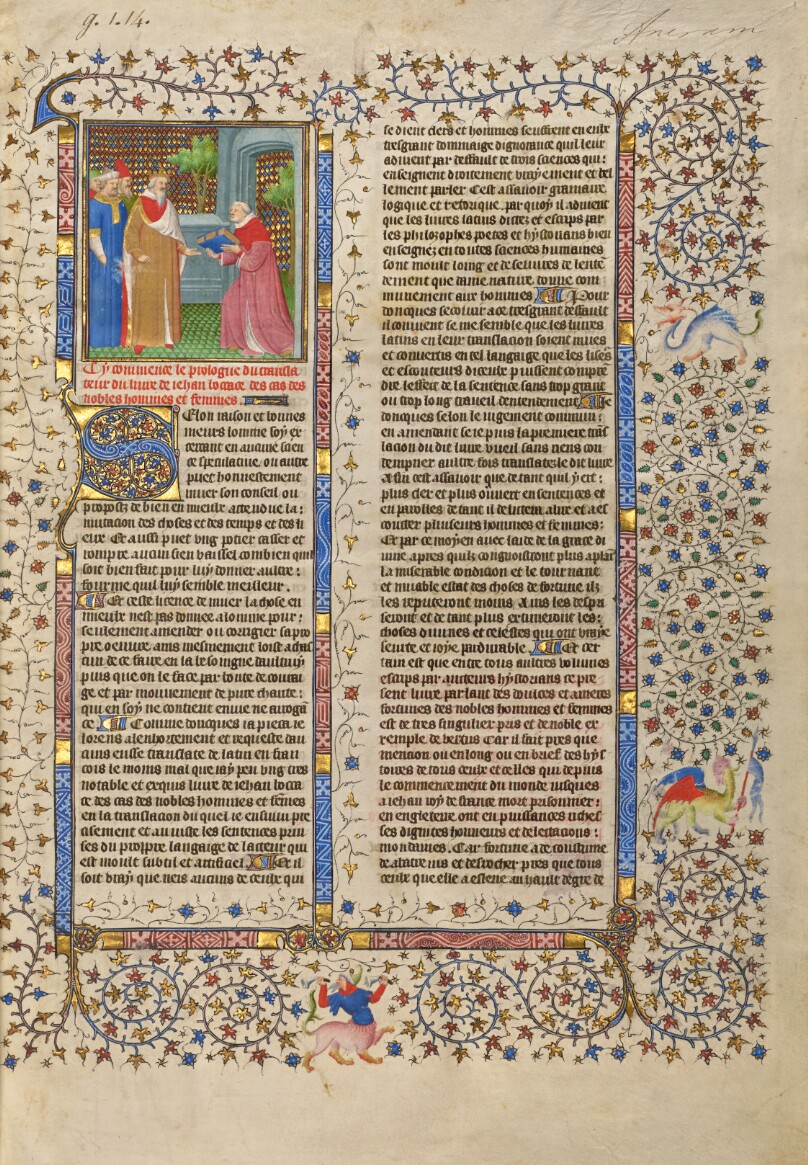 g. 1. 14.
Cy commence le prologue du transla
teur du livre de iehan bocace des cas des
nobles hommes et femmes.
Selon raison et bonnes
meurs lomme soy ex
cercant en aucune scien
ce speculatiue ou aultre
puet honnestement
muer son conseil ou
propost de bien en mieulx attendue la
mutacion des choses et des temps et des li
eux Et aussi puet ung potier casser et
rompre aucun sien vaissel combien quil
soit bien fait pour luy donner aultre
fourme qui luy semble meilleur.
Et ceste licence de muer la chose en
mieulx nest pas donnee a lomme pour
seulement amender ou corrigier sa pro
pre oeuure ains mesmement loist a chas
cun de ce faire en la besoingne daultruy
puis que on le face par bonte de coura
ge et par mouuement de pure charite
qui en soy ne contient enuie ne arroga
ce Comme doncques ia pieca ie
lorens a lenhortement et requeste dau
cuns eusse translate de latin en fran
cois le moins mal que iay peu ung tres
notable et exquis liure de iehan boca
ce des cas des nobles hommes et femes
en la translacion du quel ie ensuiui pre
cisement et au iuste les sentences prin
ses du propre langaige de lacteur qui
est moult subtil et artificiel Et il
soit vray que neis aucuns de ceulx qui
se dient clers et hommes seuffrent en eulx
tresgrant dommaige dignorance qui leur
aduient par deffault de trois sciences qui
enseignent droitement vrayement et bel
lement parler Cest assauoir gramaire
logique et retorique par quoy il aduient
que les liures latins dictez et escrips par
les philozophes poetes et hystorians bien
enseignez en toutes sciences humaines
sont moult loing et desseures de lente
dement que dame nature donne com
munement aux hommes Pour
doncques secourir a ce tresgrant deffault
il conuient se me semble que les liures
latins en leur translacion soient mues
et conuertis en tel langaige que les lises
et escouteurs diceulx puissent compre
dre leffect de la sentence sans trop grant
ou trop long traueil dentendement Je
doncques selon le iugement commun
en amendant se ie puis la premiere tras
lacion du dit liure vueil sans riens con
tempner aultre fois translater le dit liure
A fin cest assauoir que de tant quil yert
plus cler et plus ouuert en sentences et
en parolles de tant il delitera a lire et a es
couter pluseurs hommes et femmes
Et par ce moyen auec laide de la grace di
uine apres quilz congnoistront plus a plai
la miserable condicion et le tournant
et muable estat des choses de fortune ilz
les reputeront moins Ains les despri
seront et de tant plus extimeront les
choses diuines et celestes qui ont vraye
seurte et ioye pardurable Et cer
tain est que entre tous aultres volumes
escrips par aucteurs hystorians ce pre
sent liure parlant des doulces et ameres
fortunes des nobles hommes et femmes
est de tres singulier pris et de noble ex
emple de vertus Car il fait pres que
mencion ou en long ou en brief des hys
toires de tous ceulx et celles qui depuis
le commencement du monde iusques
a iehan roy de france mort prisonnier
en engleterre ont eu puissances riches
ses dignites honneurs et delectacions
mondaines. Car fortune a de coustume
dabatre ius et descrocher pres que tous
ceulx que elle a esleue au hault degre de